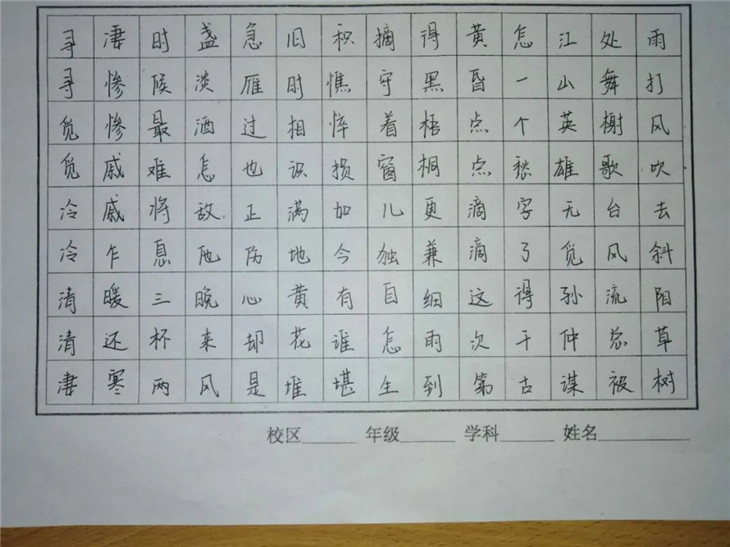 寻寻觅觅冷冷清清凄
凄惨惨戚戚乍暖还寒
时候最难将息三杯两
盏淡酒怎敌他晚来风
急雁过也正伤心却是
旧时相识满地黄花堆
积憔悴损如今有谁堪
摘守着窗儿独自怎生
得黑梧桐更兼细雨到
黄昏点点滴滴这次第
怎一个愁字了得千古
江山英雄无觅孙仲谋
处舞榭歌台风流总被
雨打风吹去斜阳草树
校区______ 年级______ 学科______ 姓名__________